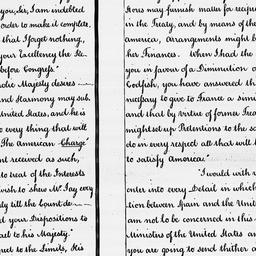 you, Sir, I am indebted
order to make it complete.
that I forget nothing,
your Excellency the Re-
before Congress."
holic Majesty desires
and Harmony may sub-
United States, and he is
to every thing that will
The American Chargé
ent received as such,
to treat of the Interests
wish to shew Mr. Jay every
ty till the Count de
ed your Dispositions to
ail to his Majesty.
pect to the Limits, His
tions may furnish matter for recipro
in the Treaty, and by means of the
america, arrangements might be
her Finances. When I had the
you in favour of a Diminution o
Codfish, you have answered th
necessary to give to France a simi
and that by virtue of former Trea
might set up Pretentions to the sa
do in every respect all that will b
to satisfy America."
"I would with
enter into every Detail in which
tion between Spain and the Unit
am not to be concerned in this
Ministers of the United States an
you are going to send thither a